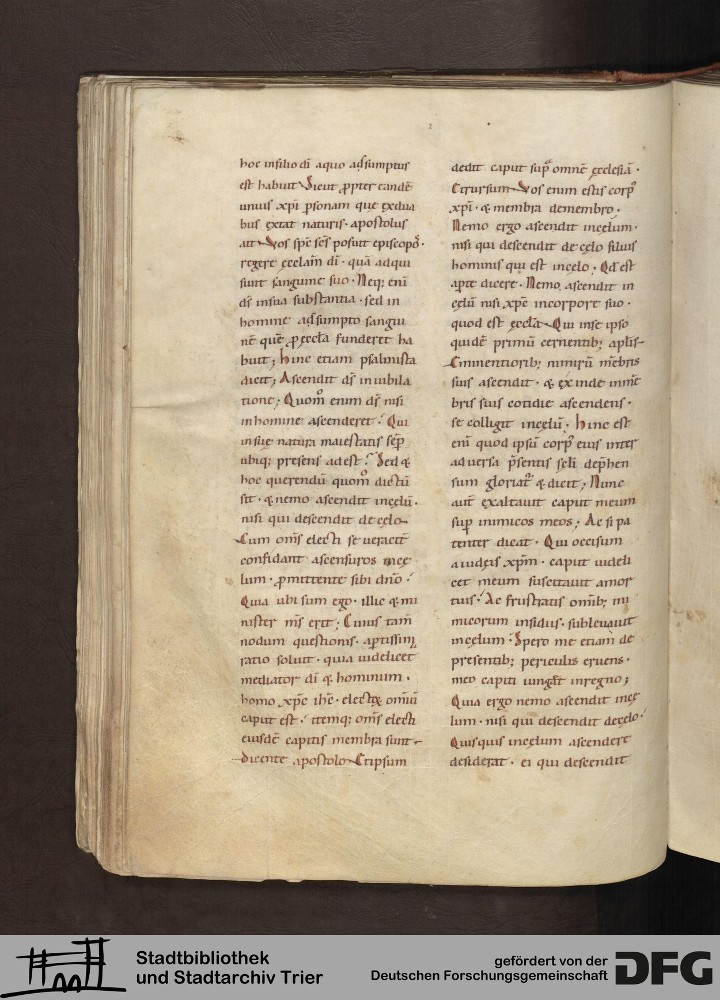 hoc in filio dı̄ a quo adsumptus
est habuit Sicut ꝓpter eandē
unius xp̄i ꝑsonam que ex dua
bus extat naturis · apostolus
ait Vos sp̄c sc̄s posuit episcopos ·
regere ecclam̄ dı̄ · quā adqui
siuit sanguine suo · Neq; enı̄
ds̄ in sua substantia · sed in
homine adsumpto sangui
nē quē ꝓ eccl̄a funderet ha
buit ; hinc etiam psalmista
dicit ; Ascendit ds̄ in iubila
tione ; Quom̊ enim ds̄ nisi
in homine ascenderet ? Qui
in sue natura maiestatis sēp
ubiq; presens adest ? Sed &
hoc querendū quom̊ dictū
sit · & nemo ascendit in celū ·
nisi qui descendit de celo
Cum om̄s electi se ueracit̄
confidant ascensuros in ce
lum · ꝓmittente sibi dn̄o ·
Quia ubi sum ego · illic & mi
nister m̄s erit ; Cuius tam̄
nodum questionis · aꝑtissim̄
ratio soluit · quia uidelicet
mediator dı̄ & hominum ·
homo xp̄c ih̄c · electoꝝ omiū
caput est · itemq; om̄s electi
eiusdē capitis membra sunt
dicente apostolo Et ipsum
dedit caput suꝑ omnē ecclesiā ·
Et rursum Vos enim estis corpꝰ
xp̄i · & membra de membro ·
Nemo ergo ascendit in celum ·
nisi qui descendit de celo filius
hominis qui est in celo ; Qd̄ est
aꝑte dicere · Nemo ascendit in
celū nisi xp̄c in corpore suo ·
quod est eccl̄a Qui in se ipso
quidē primū cernentib; apl̄is
Eminentiorib; nimirū mēbris
suis ascendit · & exinde in mē
bris suis cotidie ascendens ·
se colligit in celū · hinc est
enı̄ quod ipsū corpꝰ eius inter
aduersa p̄sentis sc̄li dep̄hen
sum gloriat᷑ & dicit ; Nunc
aut̄ exaltauit caput meum
suꝑ inimicos meos ; Ac si pa
tenter dicat · Qui occisum
a iudeis xp̄m · caput uideli
cet meum suscitauit a mor
tuis · Ac frustratis om̄ib; ini
micorum insidiis · subleuauit
in celum · Spero me etiam de
presentib; periculis eruens ·
meo capiti iungat in regno ;
Quia ergo nemo ascendit in ce
lum · nisi qui descendit de celo ·
Quisquis in celum ascendere
desiderat · ei qui descendit
Stadtbibliothek
und Stadtarchiv Trier
gefördert von der
Deutschen Forschungsgemeinschaft
DFG